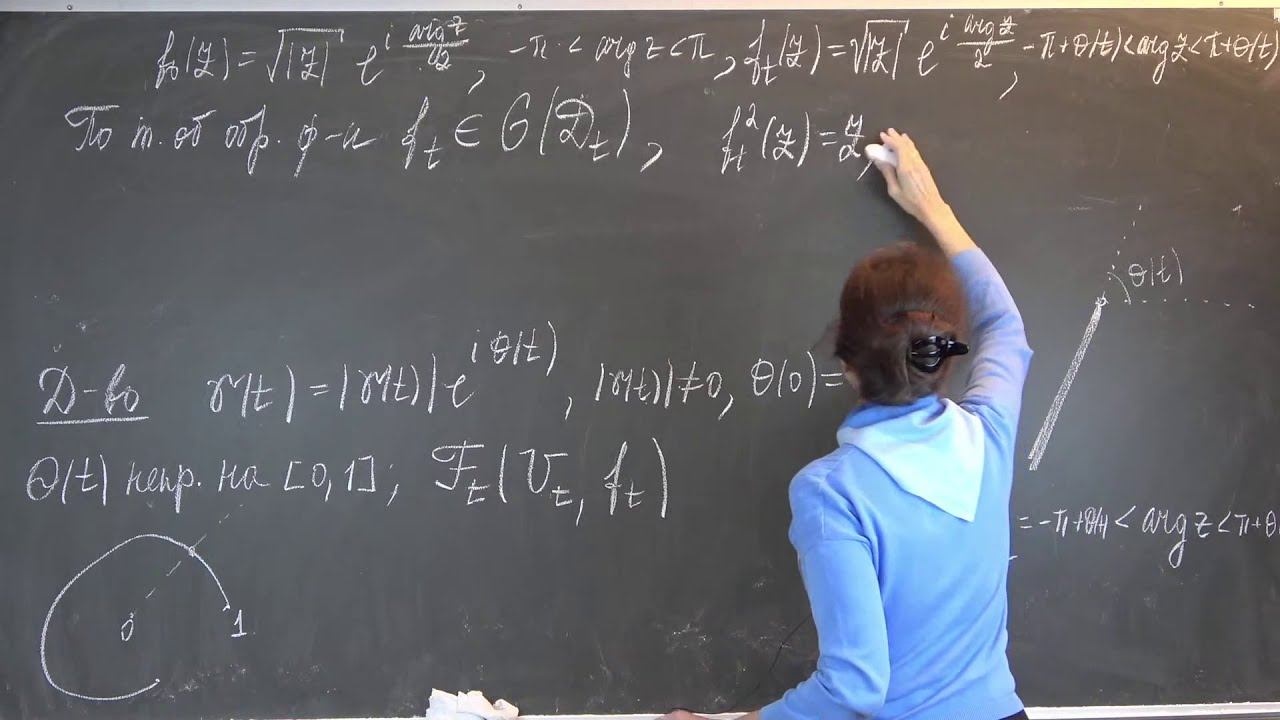 f₀(z) = √|z| e^{i arg z/2}, -π < arg z < π, f_t(z) = √|z| e^{i arg z/2}, -π+θ(t) < arg z < π+θ(t)
По т. об обр. ф-и f_t ∈ O(D_t), f_t²(z) = z,
θ(t)
Д-во γ(t) = |γ(t)| e^{iθ(t)}, |γ(t)| ≠ 0, θ(0) =
θ(t) непр. на [0,1]; F_t(U_t, f_t)
= -π+θ(t) < arg z < π+θ
0 1